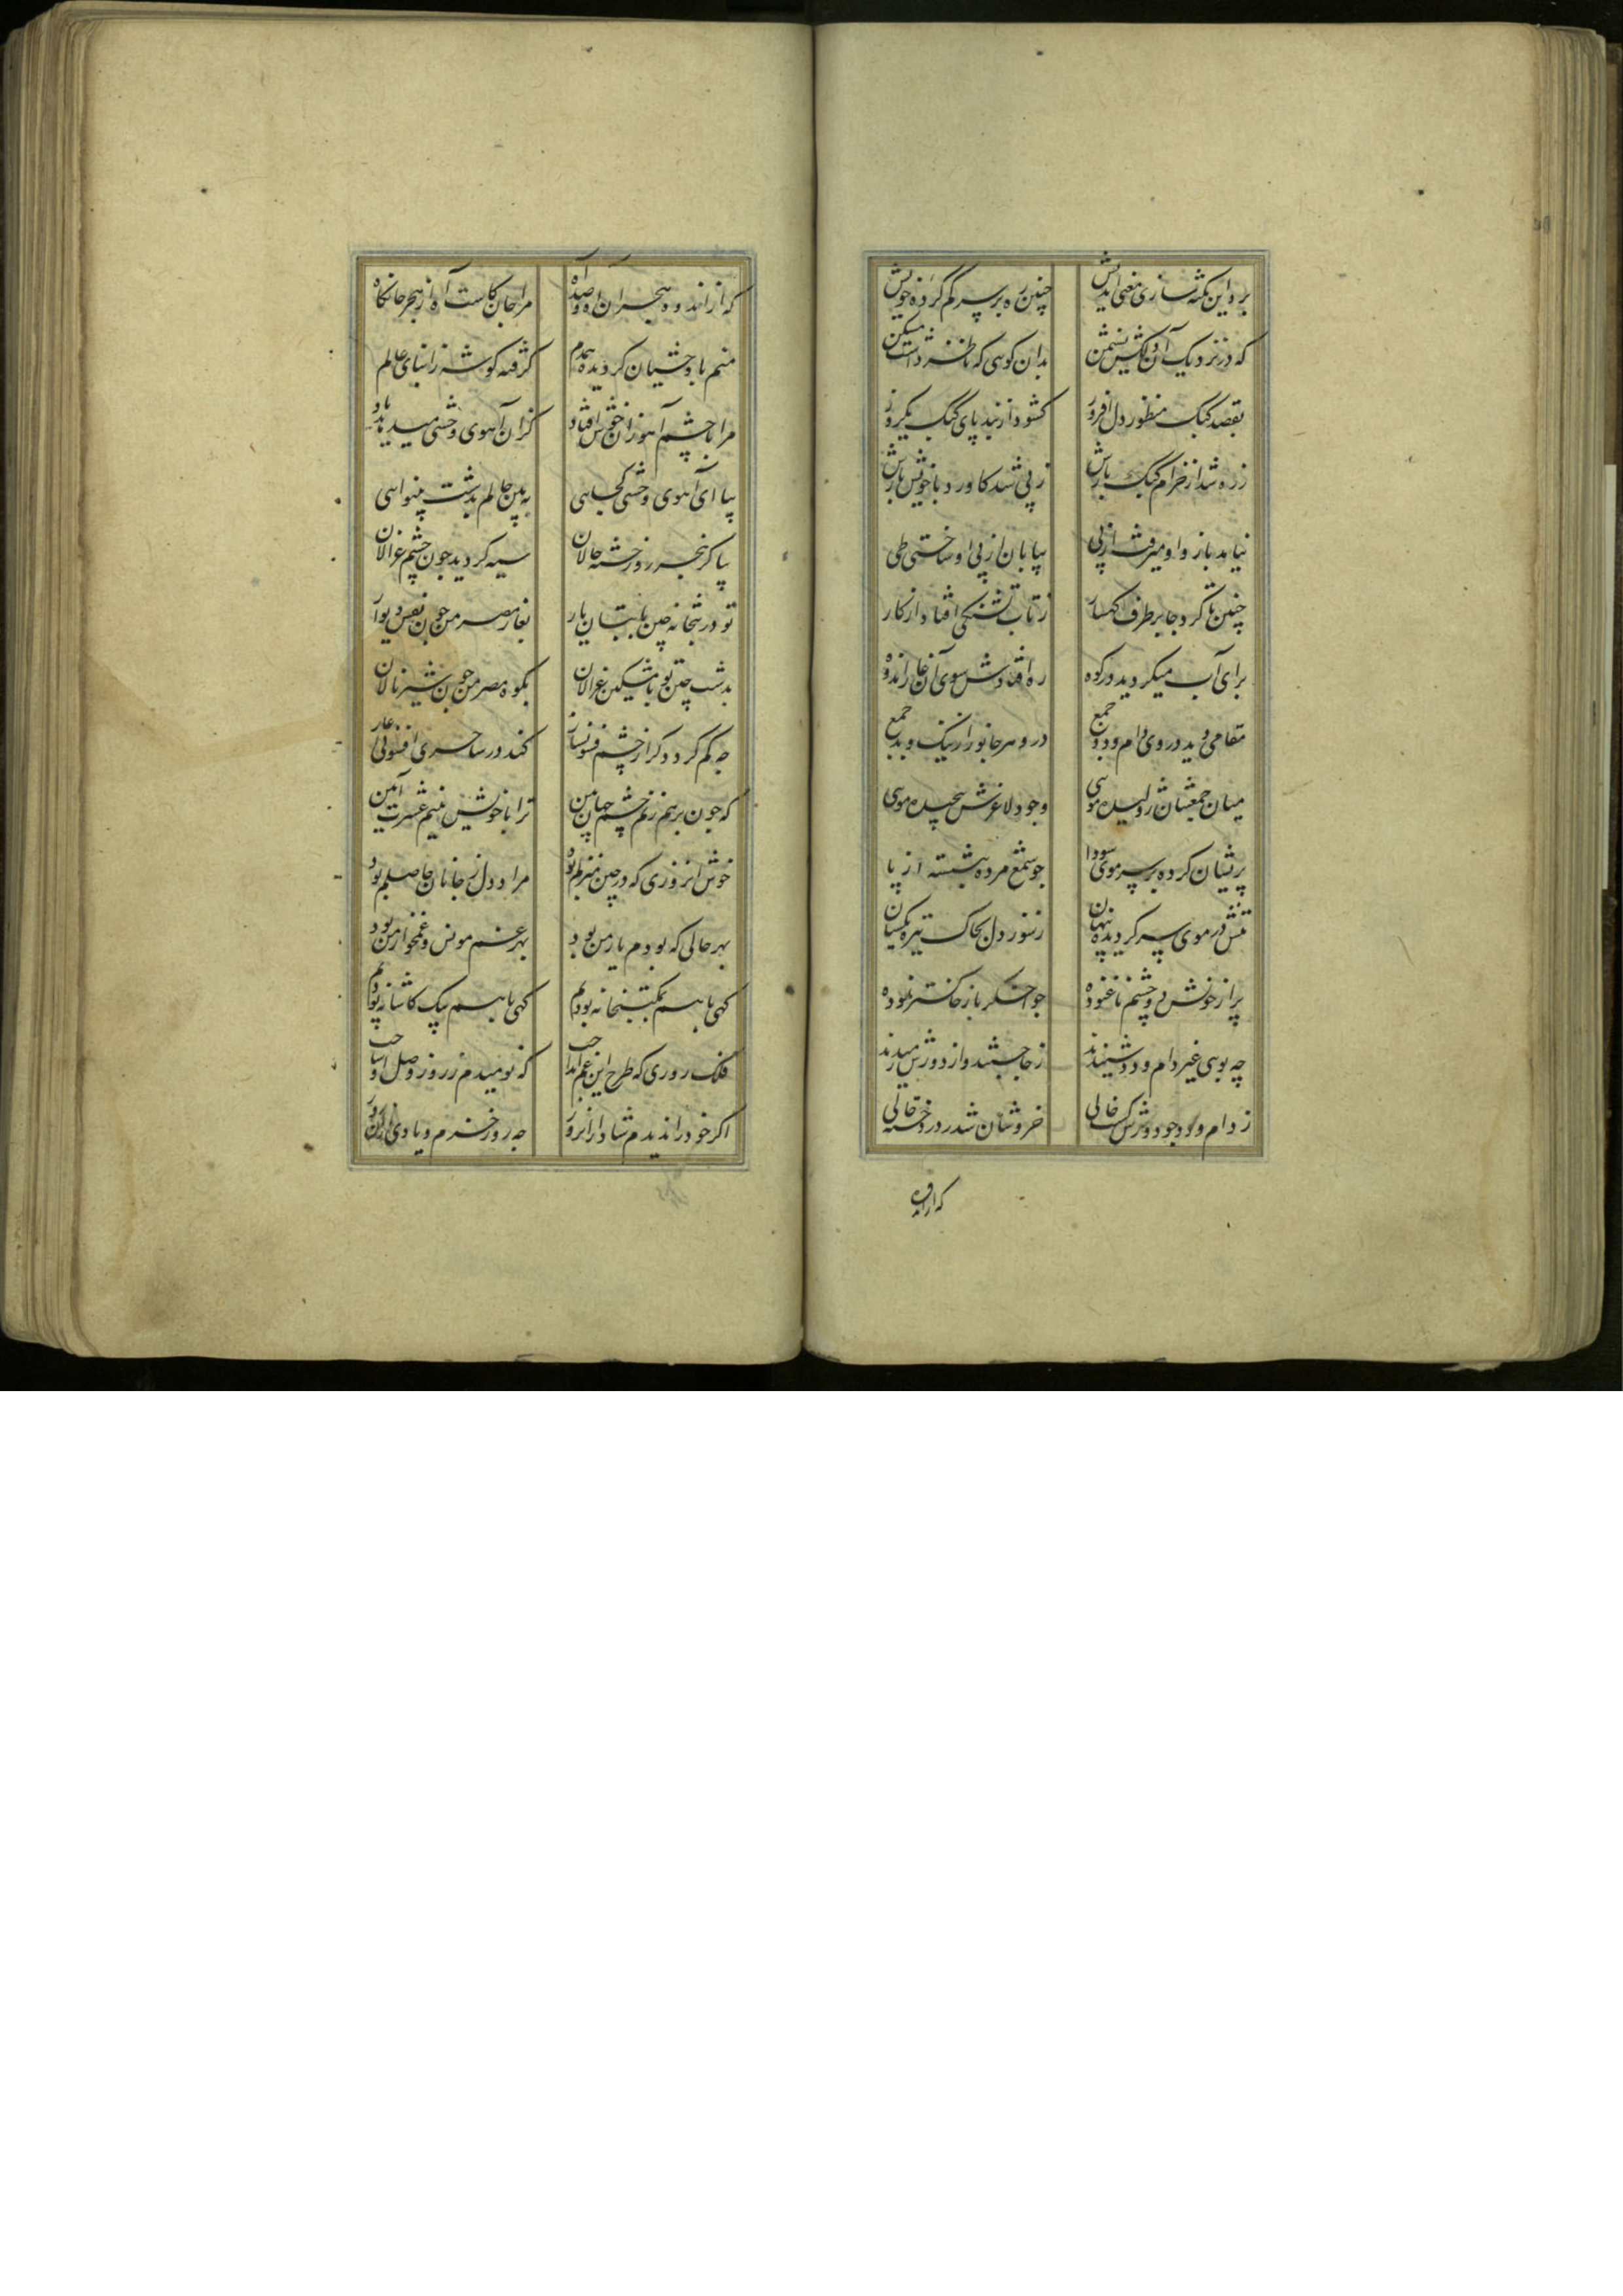 برد این نکته سازی معنی اندیش چنین ره بر سر کم کرده خویش
که در نزدیک آن دلکش نشیمن بدان کوهی که ناظر داشت مسکن
بقصد کبک منظور دل افروز کشود از بند پای کبک یکروز
ز ره شد از خرام کبک بازش ز پی شد کاورد با خویش بازش
نیامد باز و او میرفت از پی بیابان از پی او ساختی طی
چنین تا کرد جا بر طرف کهسار ز تاب تشنگی افتاد از کار
برای آب میکردید در کوه ره افتادش سوی آن غار اندوه
مقامی دید در وی دام و دد جمع در و هر جانور از نیک و بد جمع
میان جمعشان ژولیده مویی وجود لاغرش پیچیده مویی
پریشان کرده بر سر موی سودا چو شمع مرده بنشسته از پا
تنش در موی سر کردیده پنهان ز سوز دل بخاک تیره یکسان
پر از خونش دو چشم ناغنوده چو اخکر باز خاکستر نموده
چه بوی غیر دام و دد شنیدند ز جا جستند و از دورش رمیدند
ز دام و دد چو دورش کشت خالی خروشان شد ز درد خسته حالی
که از اندوه
که از اندوه و هجران آه و صد آه مرا جان کاست آه از هجر جانکاه
منم با وحشیان کردیده همدم کرفته کوشه از ابنای عالم
مرا با چشم آهو زان خوش افتاد کزان آهوی وحشی میدهد یاد
بیا ای آهوی وحشی کجایی ببین حالم بدشت بینوایی
بیا کز هجر روز خسته حالان سیه کردید چون چشم غزالان
تو در بتخانه چین با بتان یار بغار مصر من چون نقش دیوار
بدشت چین تو با مشکین غزالان بکوه مصر من چون شیر نالان
چه کم کردد کر از چشم فسونساز کند در ساحری افسونی
که چون بر هم زنم چشم جهان بین ترا با خویش بینم عشرت آیین
خوش انروزی که در چین منزلم بود مراد دل ز جانان حاصلم بود
بهر حالی که بودم یار من بود بهر غم مونس و غمخوار من بود
کهی با هم بمکتبخانه بودیم کهی با هم بیک کاشانه بودیم
فلک روزی که طرح این غم انداخت که نومیدم ز روز وصل او ساخت
اکر خود را ندیدم شاد از انروز چه روز خرم و یاد